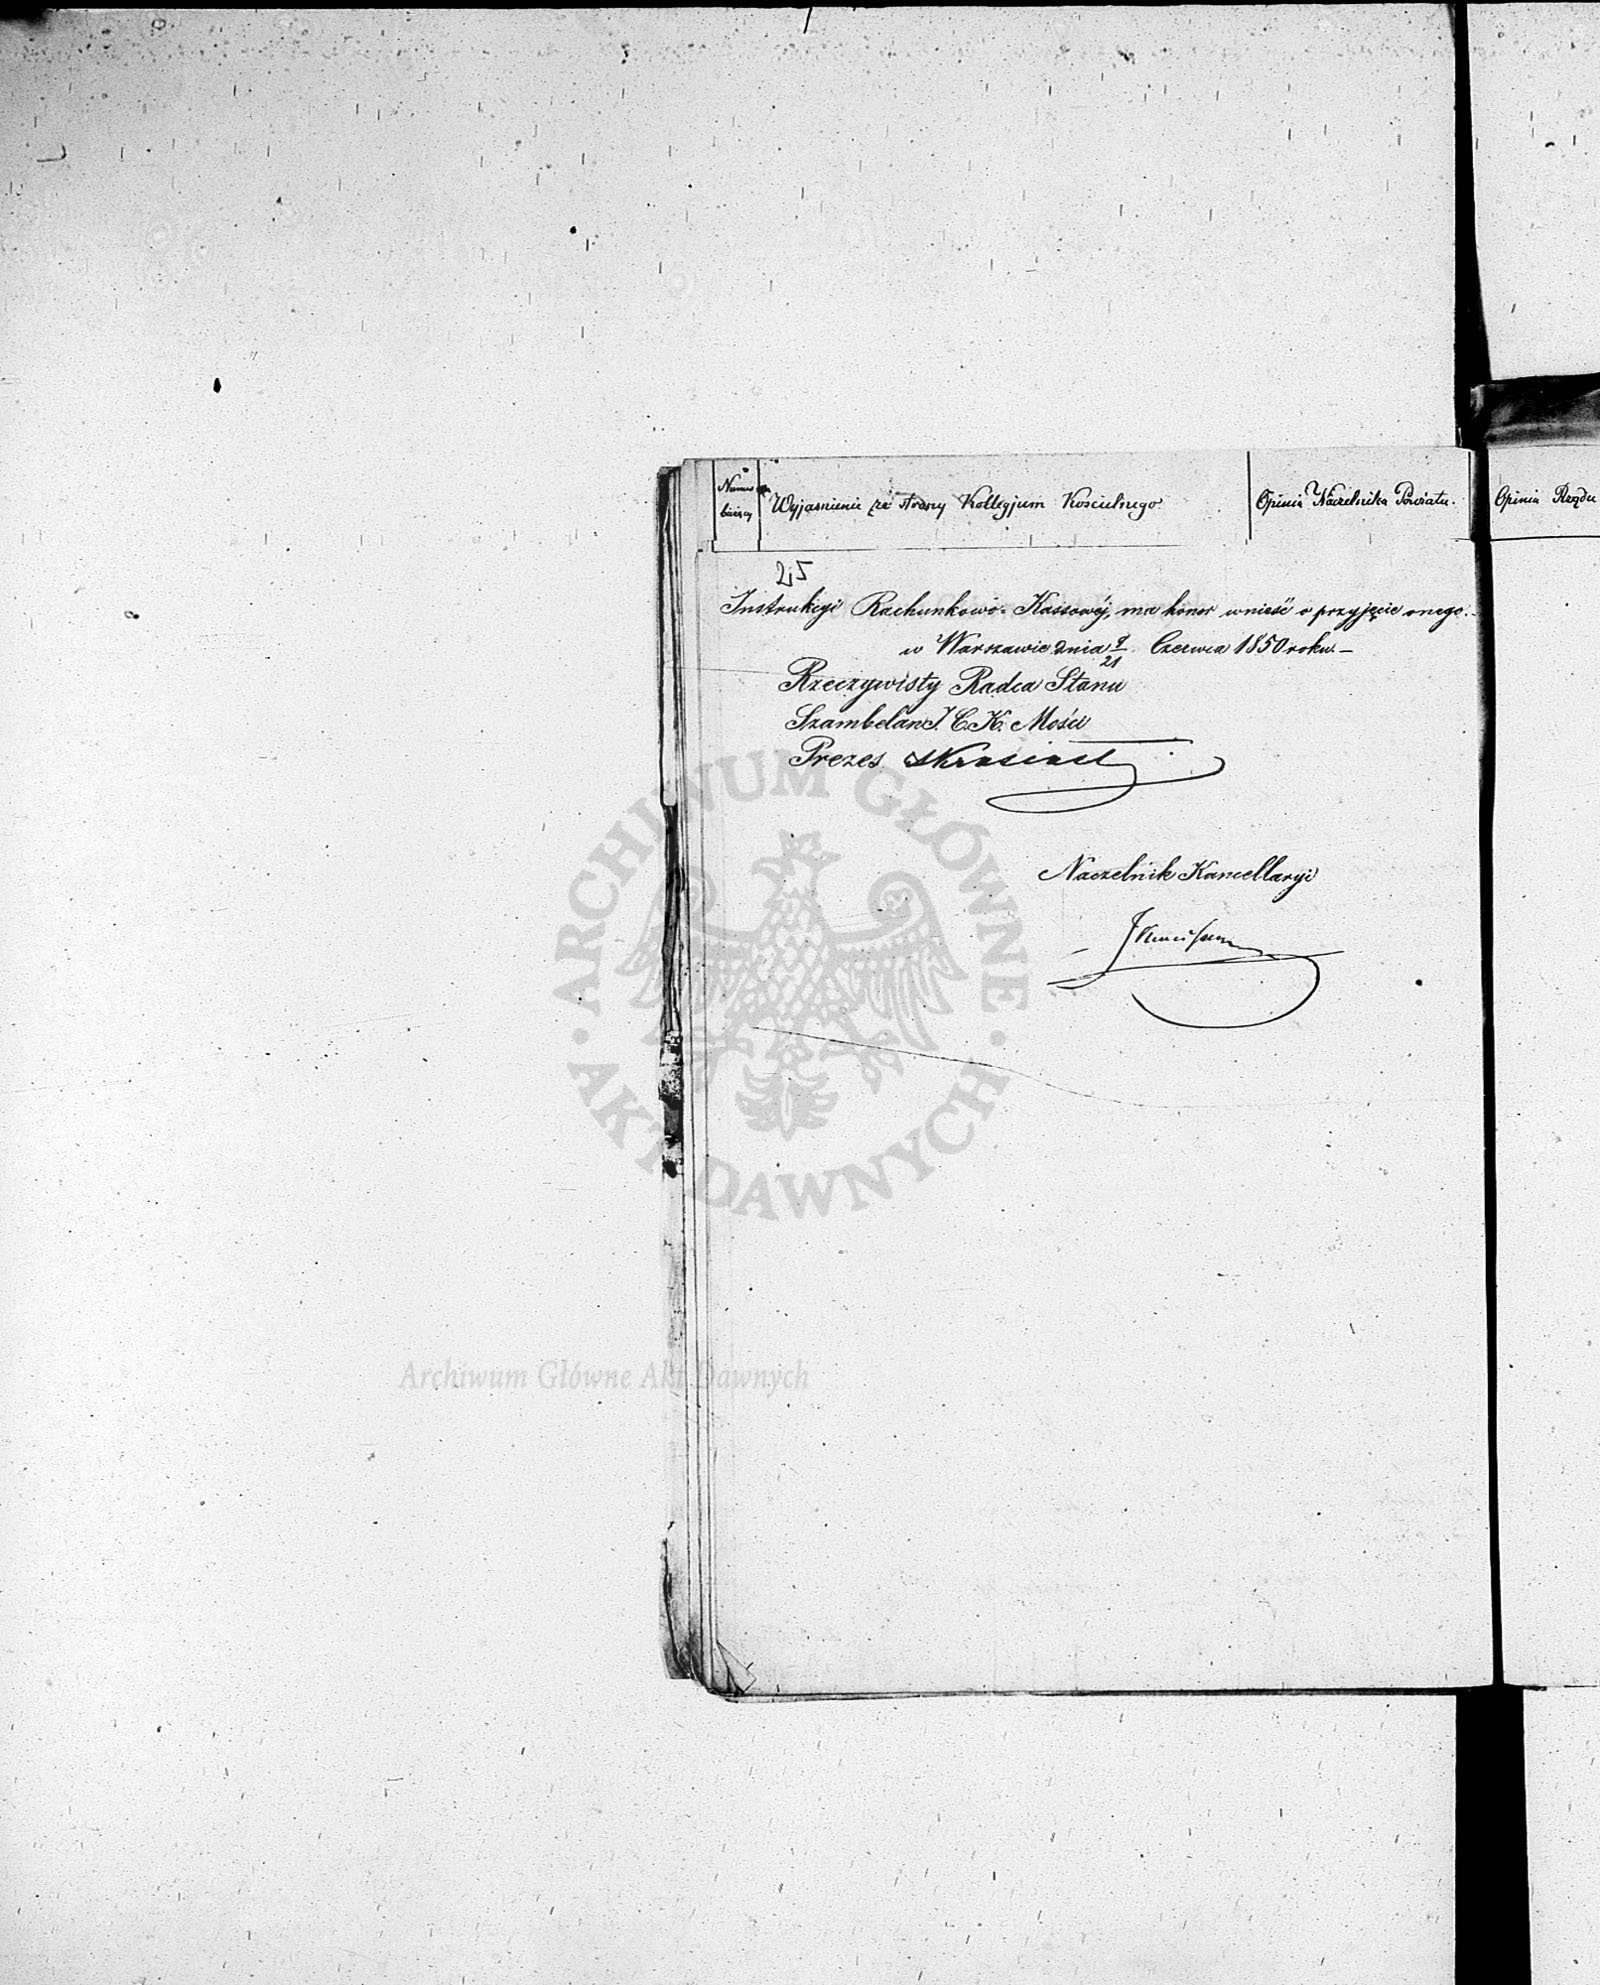 Numer bieżący
Wyjasnienie ze strony Kollegjum Koscielnego
Opinia Naczelnika Powiatu.
Opinia Rządu
Instrukcyi Rachunkowo-Kassowéj, ma honor wnieść o przyjęcie onego.
w Warszawie dnia 9/21 Czerwca 1850 roku.—
Rzeczywisty Radca Stanu
Szambelan J. C. K. Mości
Prezes
Naczelnik Kancellaryi
ARCHIWUM GŁÓWNE
AKT DAWNYCH
Archiwum Główne Akt Dawnych